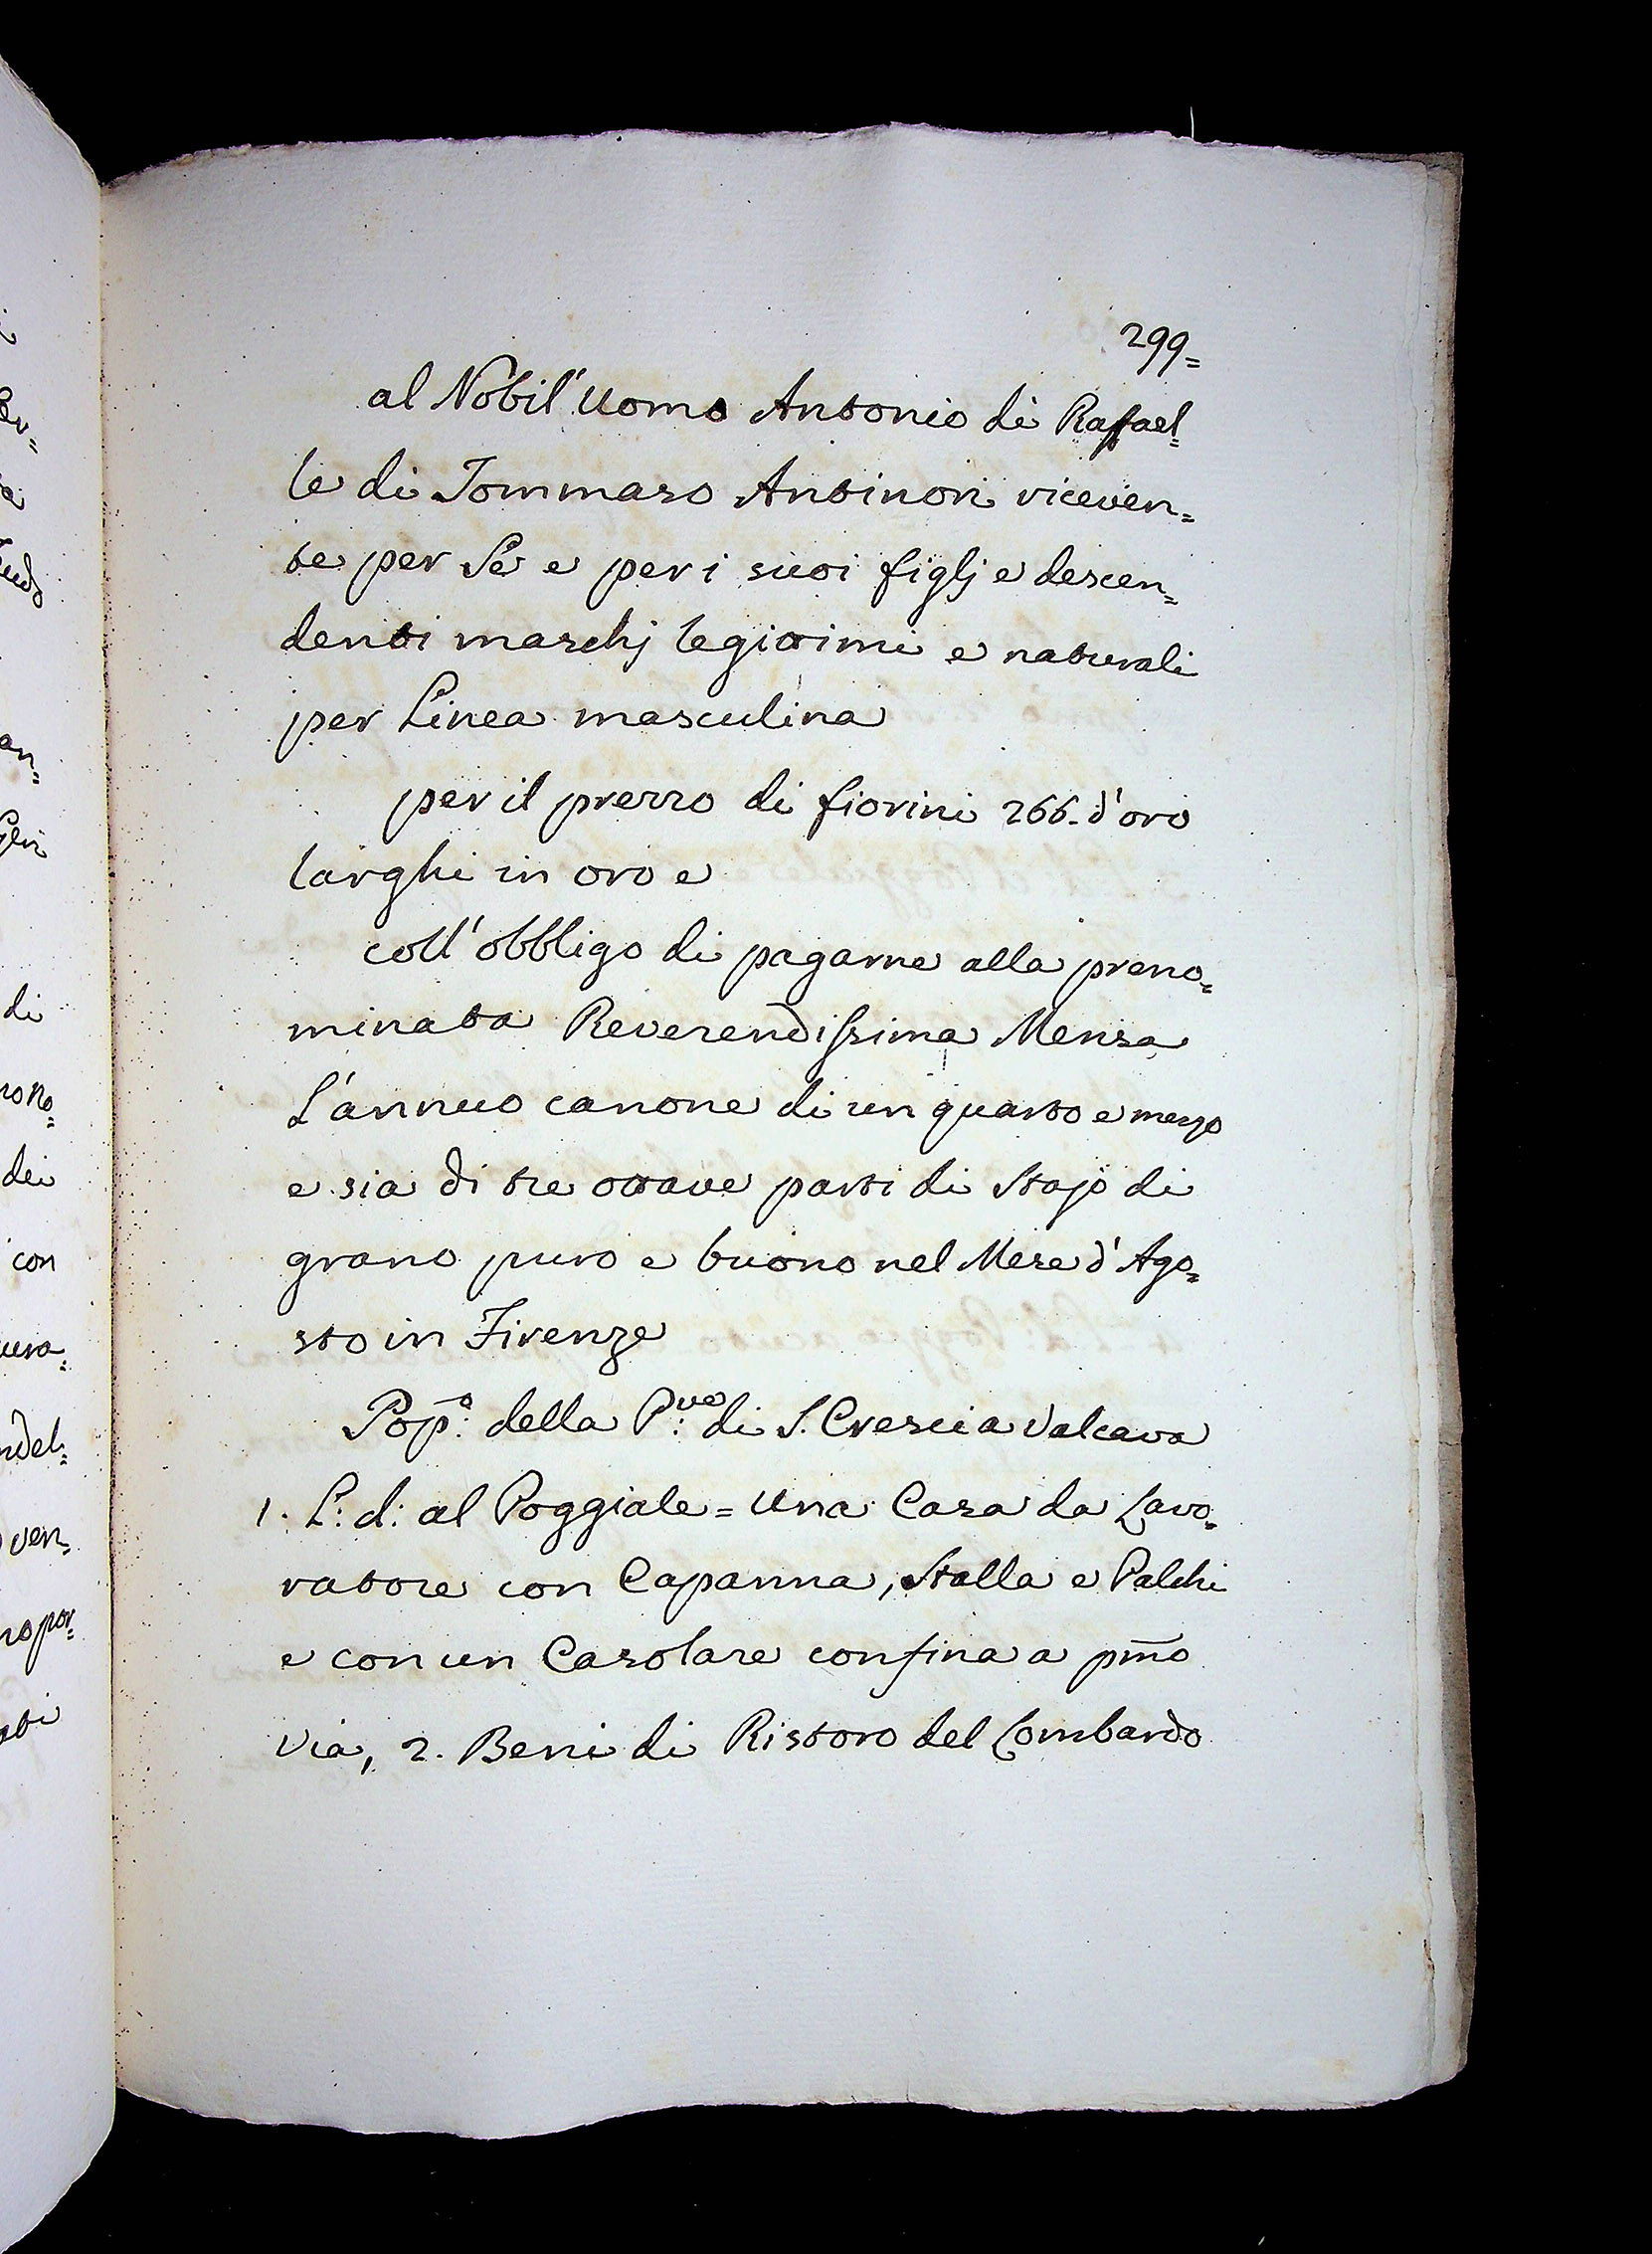 299=
al Nobil' Uomo Antonio di Raffael=
le di Tommaso Antinori riceven=
te per Se e per i suoi figlj e descen=
denti maschj legittimi e naturali
per Linea masculina
per il prezzo di fiorini 266. d'oro
larghi in oro e
coll'obbligo di pagarne alla preno=
minata Reverendissima Mensa
L'annuo canone di un quarto e mezzo
e sia di tre ottave parti di Stajo di
grano puro e buono nel Mese d'Ago=
sto in Firenze
Pop.º della P.ve di S. Cresci a Valcava
1. L: d: al Poggiale = Una Casa da Lavo=
ratore con Capanna, Stalla e Palchi
e con un Casolare confina a pm̃o
Via, 2. Beni di Ristoro del Lombardo